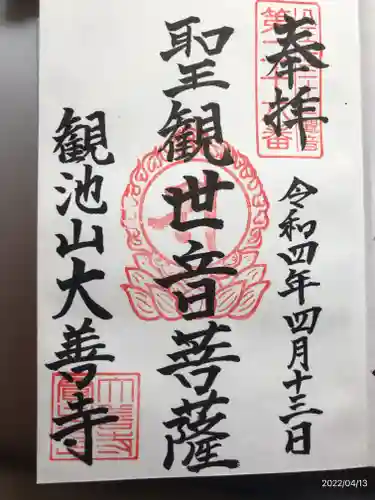 奉拝
令和四年四月十三日
聖観世音菩薩
観池山大善寺
2022/04/13